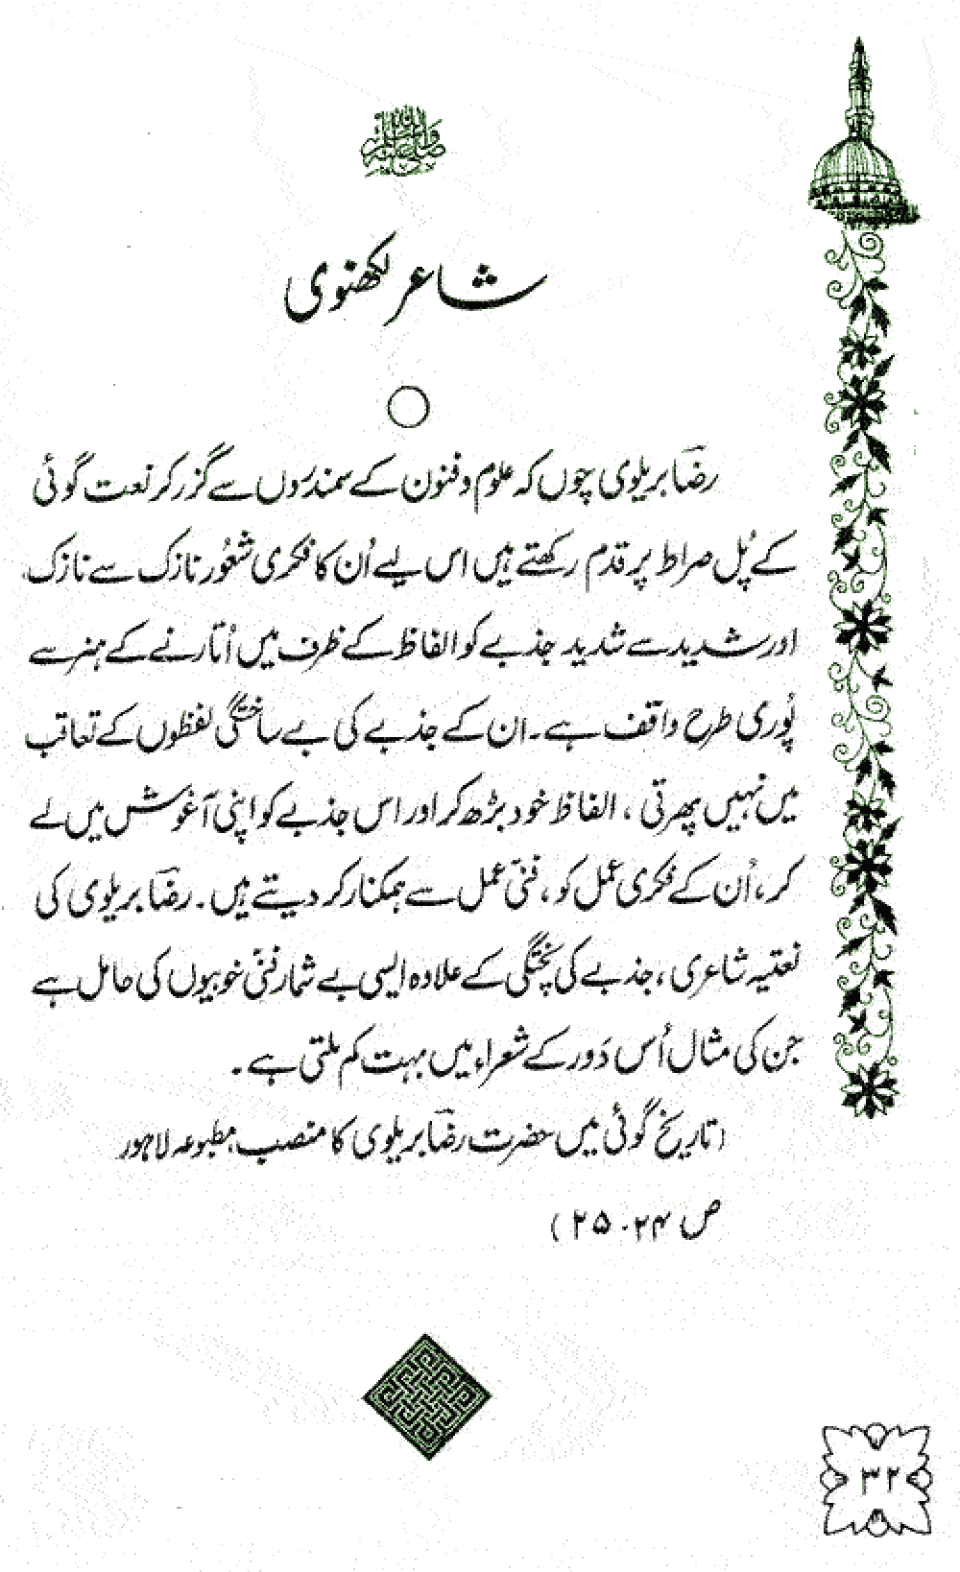 صلى الله عليه وسلم
شاعر لکھنوی
رضاؔ بریلوی چوں کہ علوم و فنون کے سمندروں سے گزر کر نعت گوئی
کے پُل صراط پر قدم رکھتے ہیں اس لیے اُن کا فکری شعُور نازک سے نازک
اور شدید سے شدید جذبے کو الفاظ کے ظرف میں اُتارنے کے ہنر سے
پُوری طرح واقف ہے۔ ان کے جذبے کی بے ساختگی لفظوں کے تعاقب
میں نہیں پھرتی ، الفاظ خود بڑھ کر اور اس جذبے کو اپنی آغوش میں لے
کر ، اُن کے فکری عمل کو ، فنّی عمل سے ہمکنار کر دیتے ہیں۔ رضاؔ بریلوی کی
نعتیہ شاعری ، جذبے کی پختگی کے علاوہ ایسی بے شمار فنّی خوبیوں کی حامل ہے
جن کی مثال اُس دَور کے شعراء میں بہت کم ملتی ہے ۔
(تاریخ گوئی میں حضرت رضاؔ بریلوی کا منصب مطبوعہ لاہور
ص ۲۴۔۲۵)
۳۲